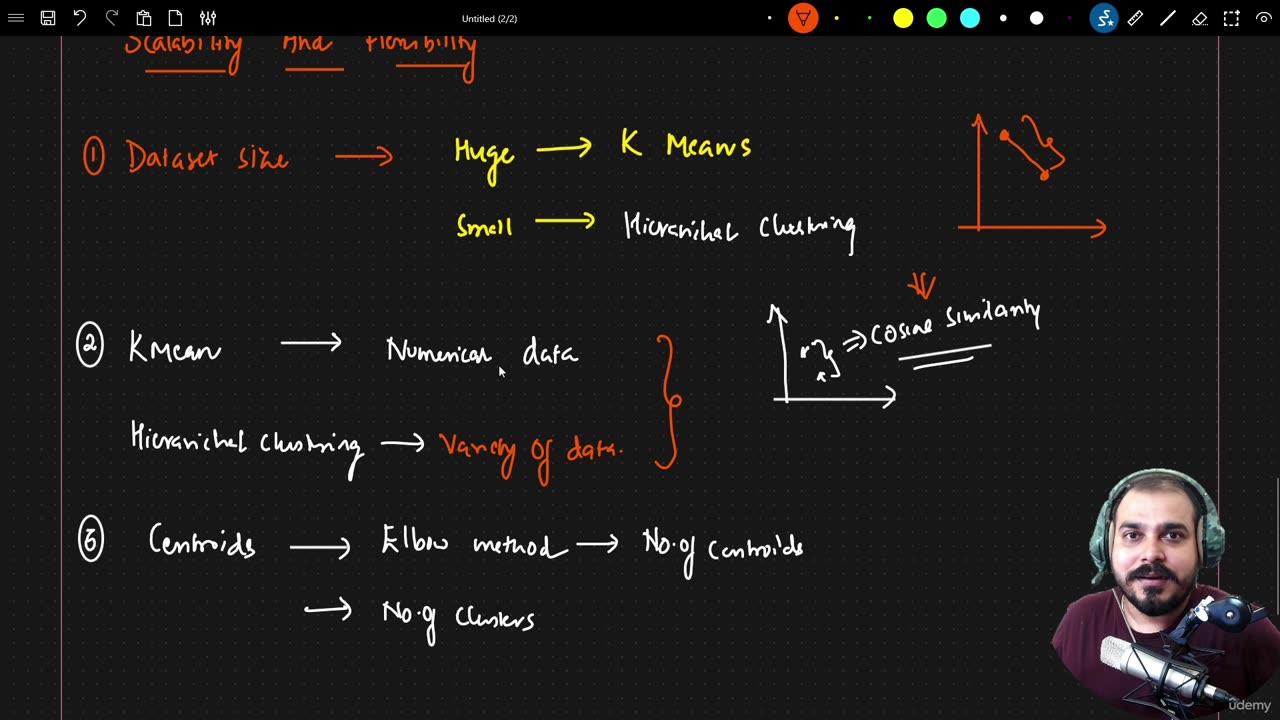 Untitled (2/2)
Scalability And Flexibility
① Dataset size → Huge → K Means
Small → Hierarchical Clustering
② K Mean → Numerical data
⇒ Cosine Similarity
Hierarchical Clustring → Variety of data.
③ Centroids → Elbow method → No. of Centroids
→ No. of Clusters
udemy